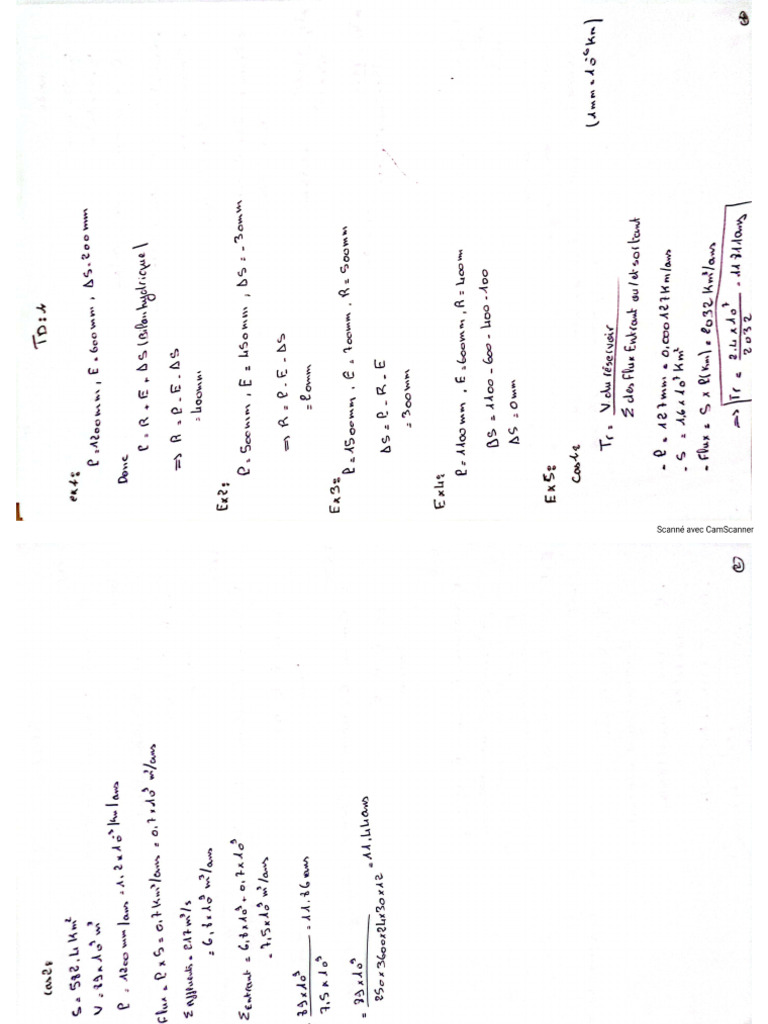 TD: 1
ex1:
P=1200mm, E=600mm, ΔS=200mm
Donc
P=R+E+ΔS (Bilan hydrique)
⇒ R = P-E-ΔS
=400mm
Ex2:
P=500mm, E=450mm, ΔS=-30mm
⇒ R=P-E-ΔS
=20mm
Ex3:
P=1500mm, E=700mm, R=500mm
ΔS=P-R-E
=300mm
Ex4:
P=1100mm, E=600mm, R=400m
ΔS=1100-600-400-100
ΔS=0mm
Ex5:
Cas1:
Tr= V du réservoir
Σ des Flux Entrant ou/et sortant
(1mm=10⁻⁶Km)
- P=127mm=0,000127Km/ans
- S=1,6x10⁷Km²
- Flux=S x P(Km)=2032Km³/ans
⇒ Tr= 2.4x10⁷ / 2032 = 11811ans
①
Scanné avec CamScanner
cas2:
S=582.4Km²
V=89x10⁹m³
P=1200mm/ans=1.2x10⁻³Km/ans
Flux=PxS=0.7Km³/ans=0.7x10⁹m³/ans
Σ Affluents=217m³/s
=6,8x10⁹m³/ans
Σ Entrant=6,8x10⁹+0.7x10⁹
=7,5x10⁹m³/ans
89x10⁹ / 7.5x10⁹ =11.86ans
= 89x10⁹ / 250x3600x24x30x12 =11.44ans
②